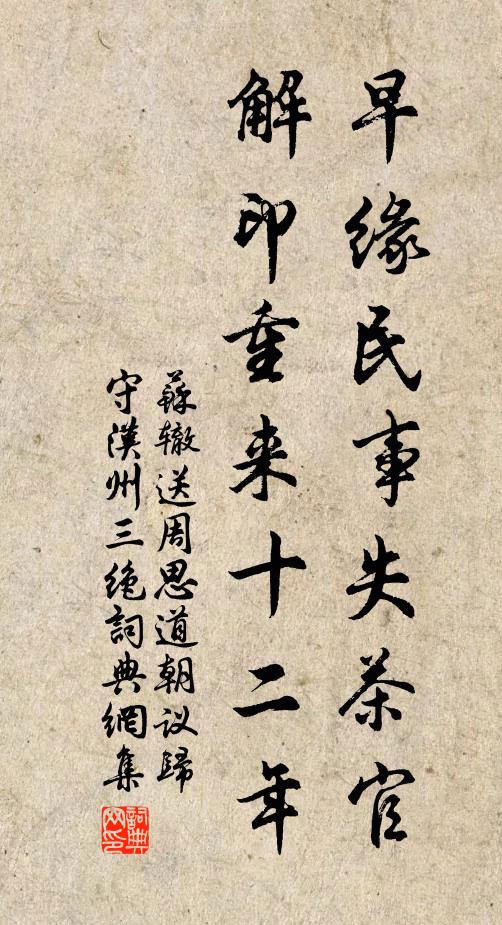 早缘民事失茶官
解印重来十二年
蘇辙送周思道朝议歸
守漢州三绝詞典網集
詞典
网印